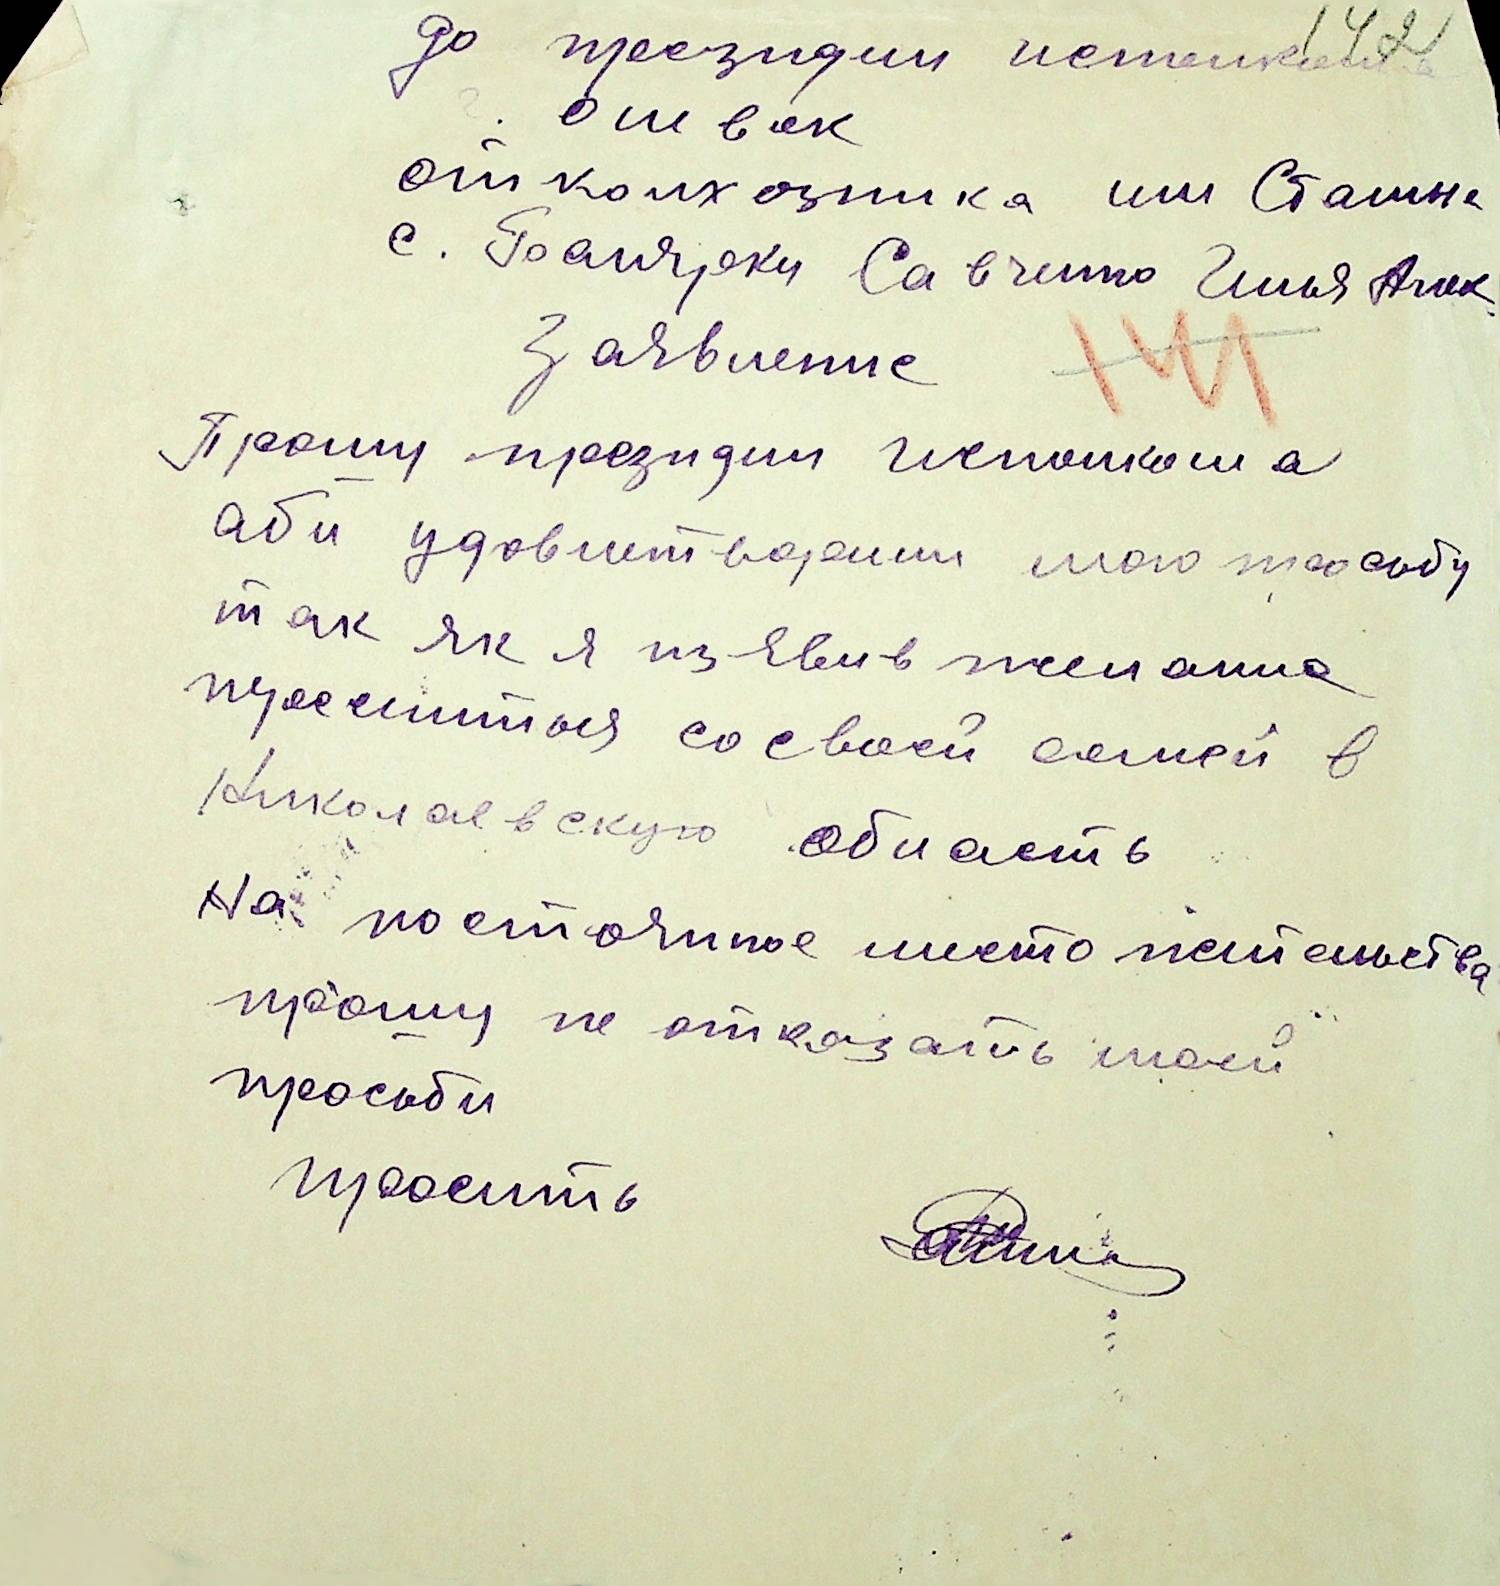 142
до президии исполкома
от колхозника им Сталина
с. Боярки Савченко Илья Алек.
Заявление
Прошу президии исполкома
аби удовлетворили мою просьбу
так як я изявив желание
преселиться со своей семей в
Николаевскую область
На постояное место жительства
прошу не отказать моей
просьби
просить